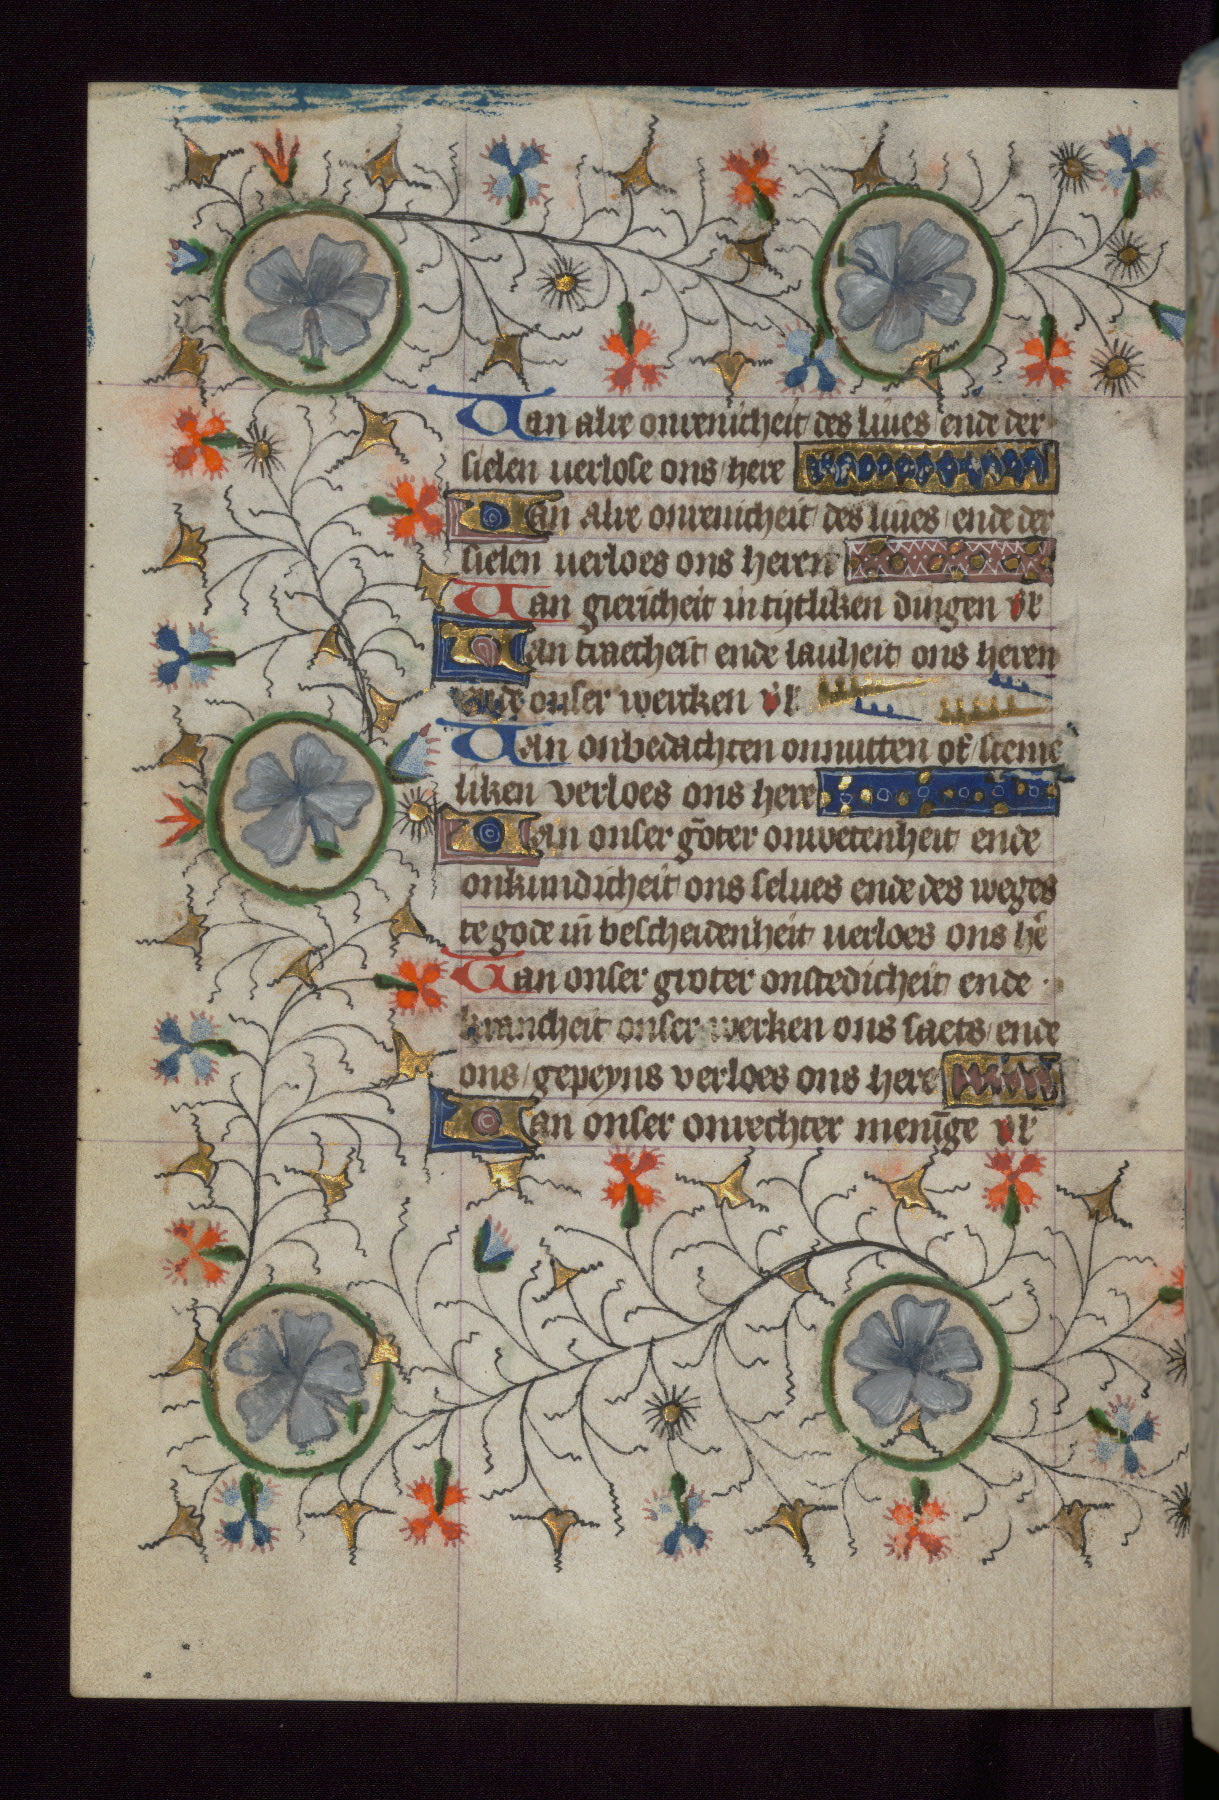 Van alre onrenicheit des liues ende der
sielen verlose ons here
Van alre onrenicheit des liues ende der
sielen verloes ons heren
Van giericheit in tijtliken dingen v̄l
Van traecheit ende lauheit ons heren
ende onser wercken v̄l
Van onbedachten onnutten of
liken verloes ons here
Van onser g̊oter onwetenheit ende
onkundicheit ons selues ende des weges
te gode in̄ bescheidenheit verloes ons he
Van onser groter onstedicheit ende
krancheit onser werken ons laets ende
ons gepeyns verloes ons here
Van onser onrechter menīge v̄l